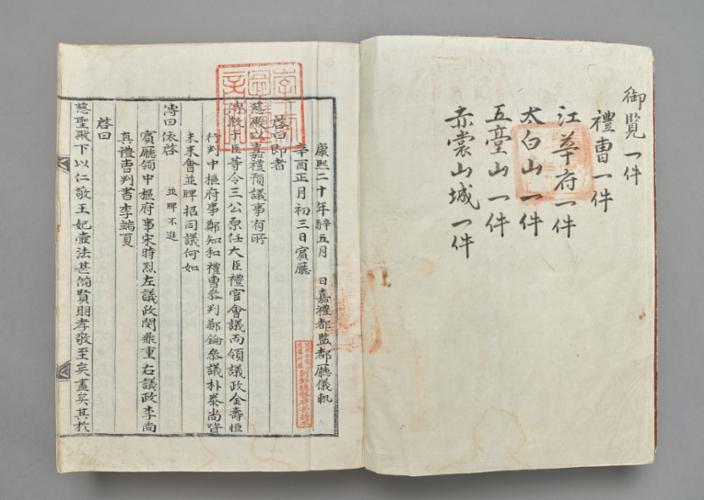 御覧一件
禮曹一件
江華府一件
太白山一件
五臺山一件
赤裳山城一件
康熙二十年辛酉五月 日嘉禮都監都廳儀軌
辛酉正月初三日賓廳
啓曰即者
慈殿以嘉禮預議事有所
傳教于臣等令三公原任大臣禮官會議而領議政金壽恒
行判中樞府事鄭知和禮曹參判鄭錀參議朴泰尚皆
未來會並牌招同議何如
傳曰依啓 並牌不進
賓廳領中樞府事宋時烈左議政閔鼎重右議政李尚
真禮曹判書李端夏
啓曰
慈聖殿下以仁敬王妃壼法甚備賢明孝敬至矣盡矣其於